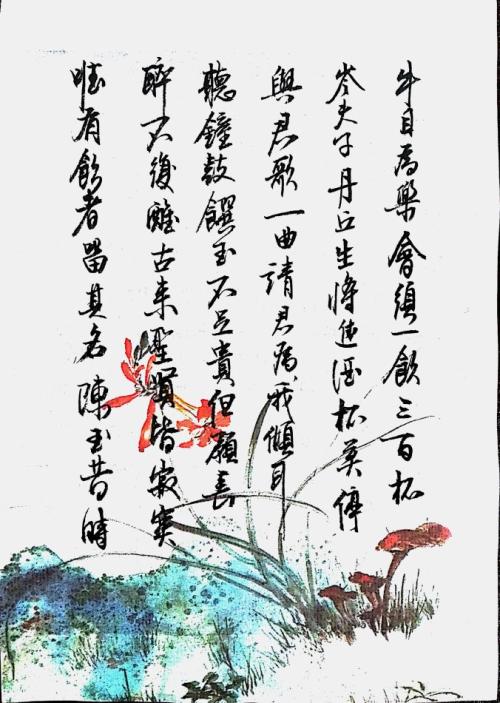 牛且為樂會須一飲三百杯
岑夫子丹丘生將進酒杯莫停
與君歌一曲請君為我傾耳
聽鐘鼓饌玉不足貴但願長
醉不復醒古來聖賢皆寂寞
唯有飲者留其名陳王昔時